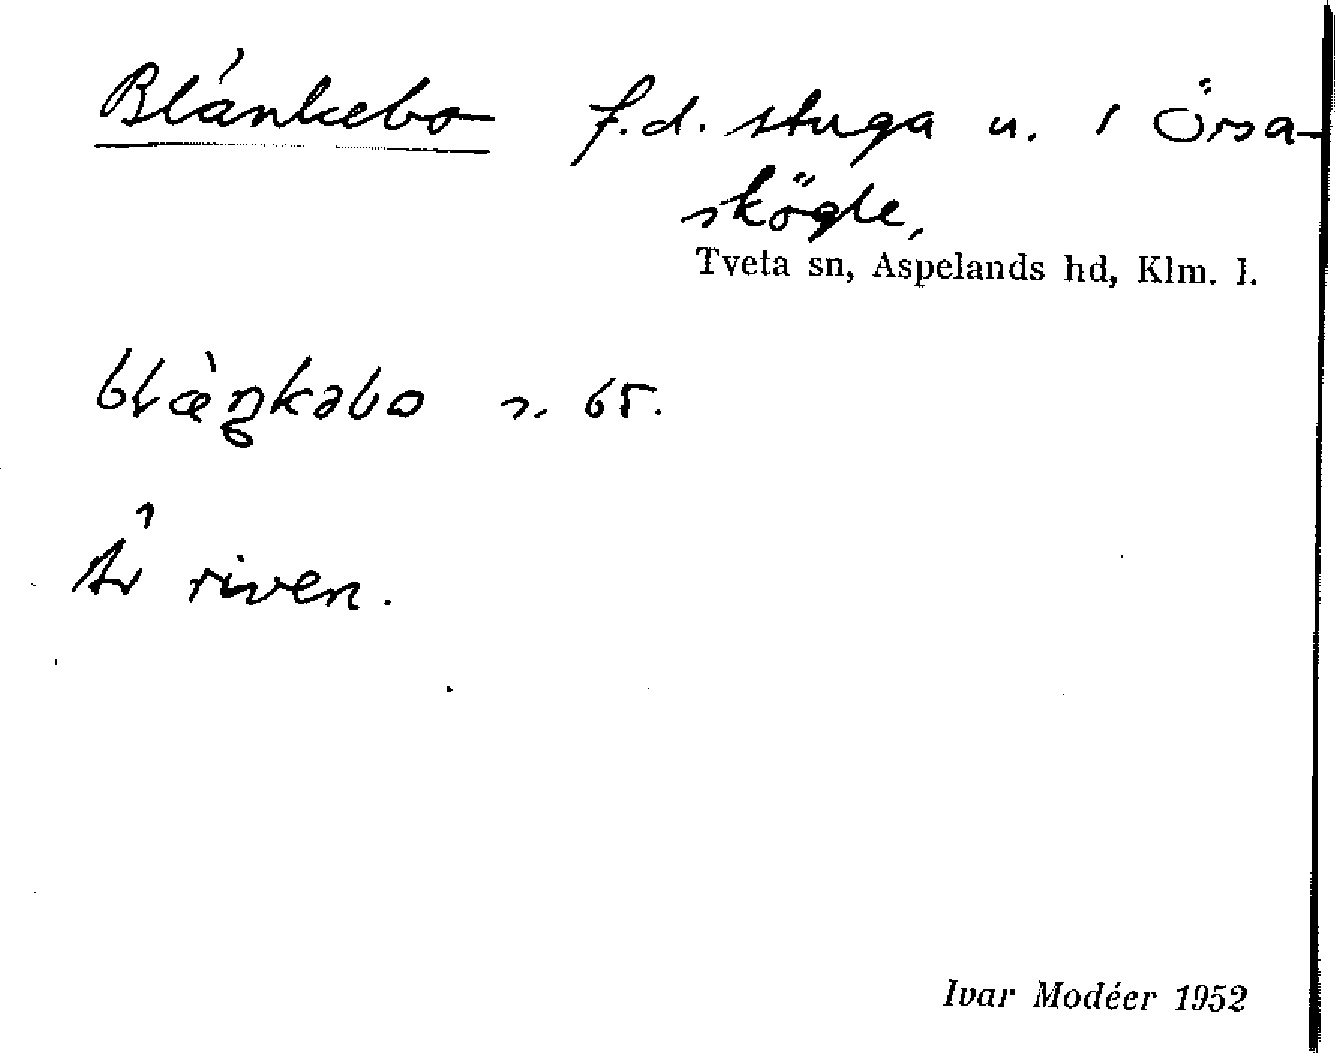 Blänkebo f.d. stuga u. 1 Örsa-
skögle,
Tveta sn, Aspelands hd, Klm. l.
s. 65.
Är riven.
Ivar Modéer 1952